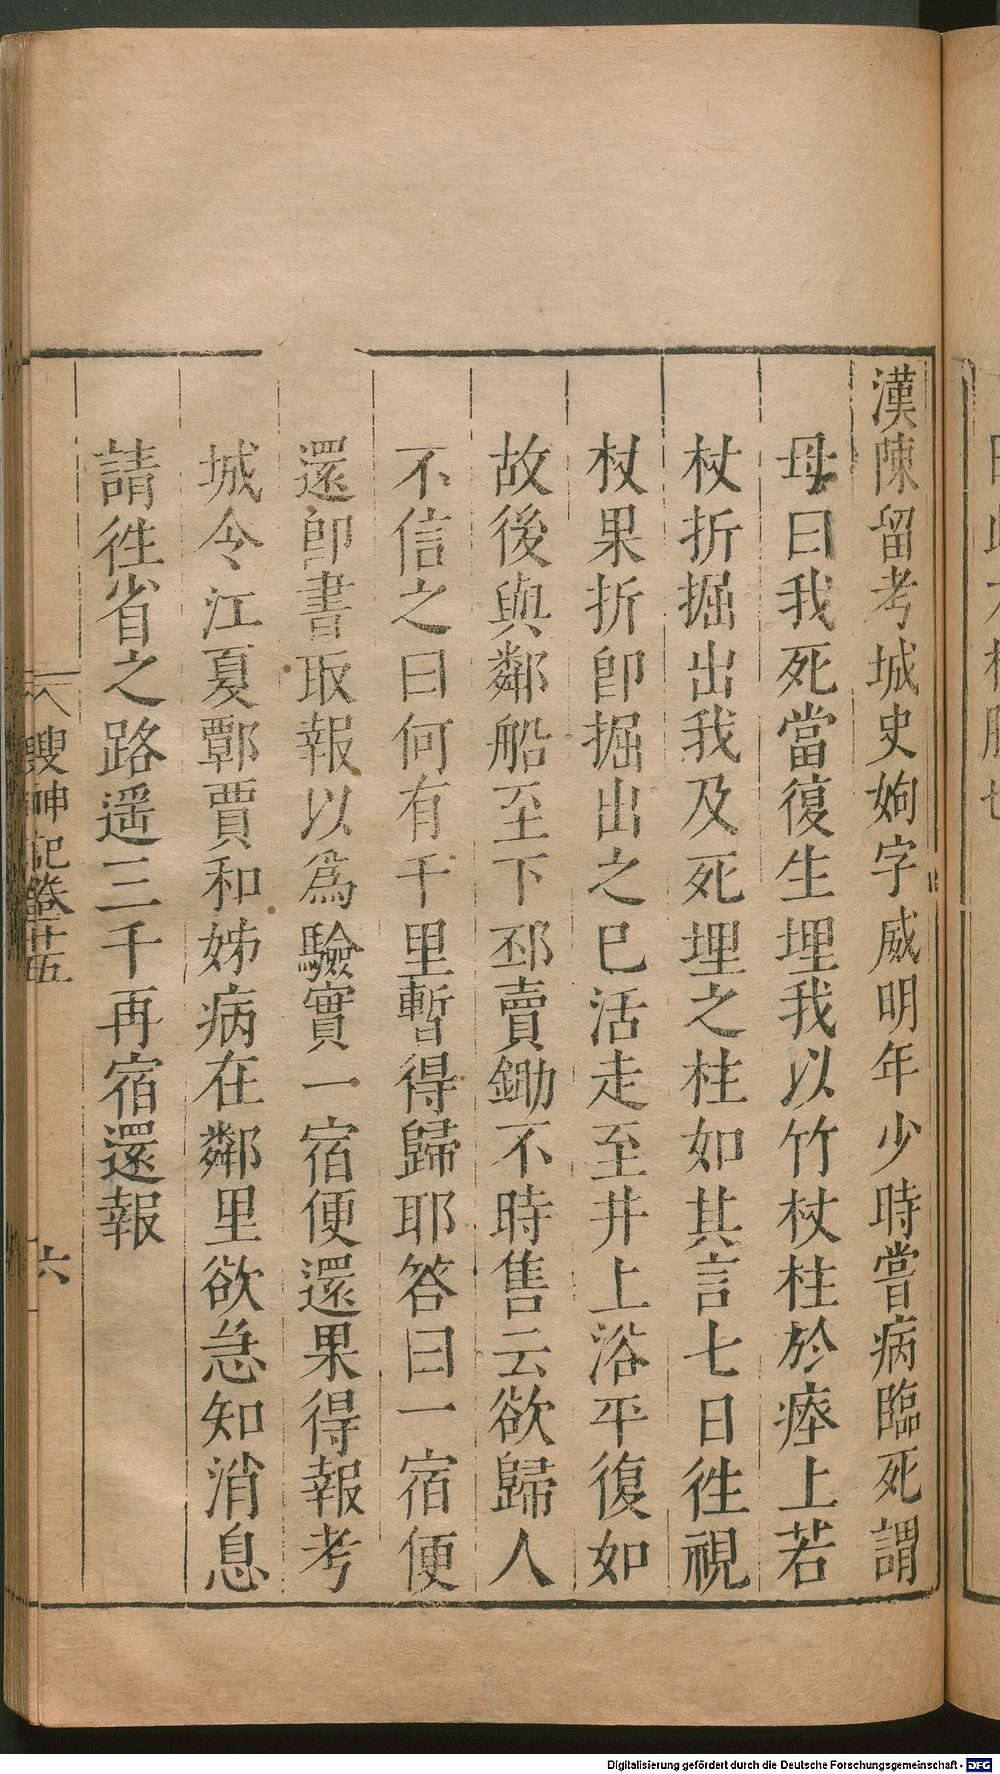 漢陳留考城史姁字威明年少時嘗病臨死謂
母曰我死當復生埋我以竹杖柱於瘞上若
杖折掘出我及死埋之柱如其言七日徃視
杖果折卽掘出之巳活走至井上浴平復如
故後與鄰船至下邳賣鋤不時售云欲歸人
不信之曰何有千里暫得歸耶答曰一宿便
還卽書取報以爲驗實一宿便還果得報考
城令江夏鄳賈和姊病在鄰里欲急知消息
請徃省之路遥三千再宿還報
搜神記卷十五
六
Digitalisierung gefördert durch die Deutsche Forschungsgemeinschaft - DFG